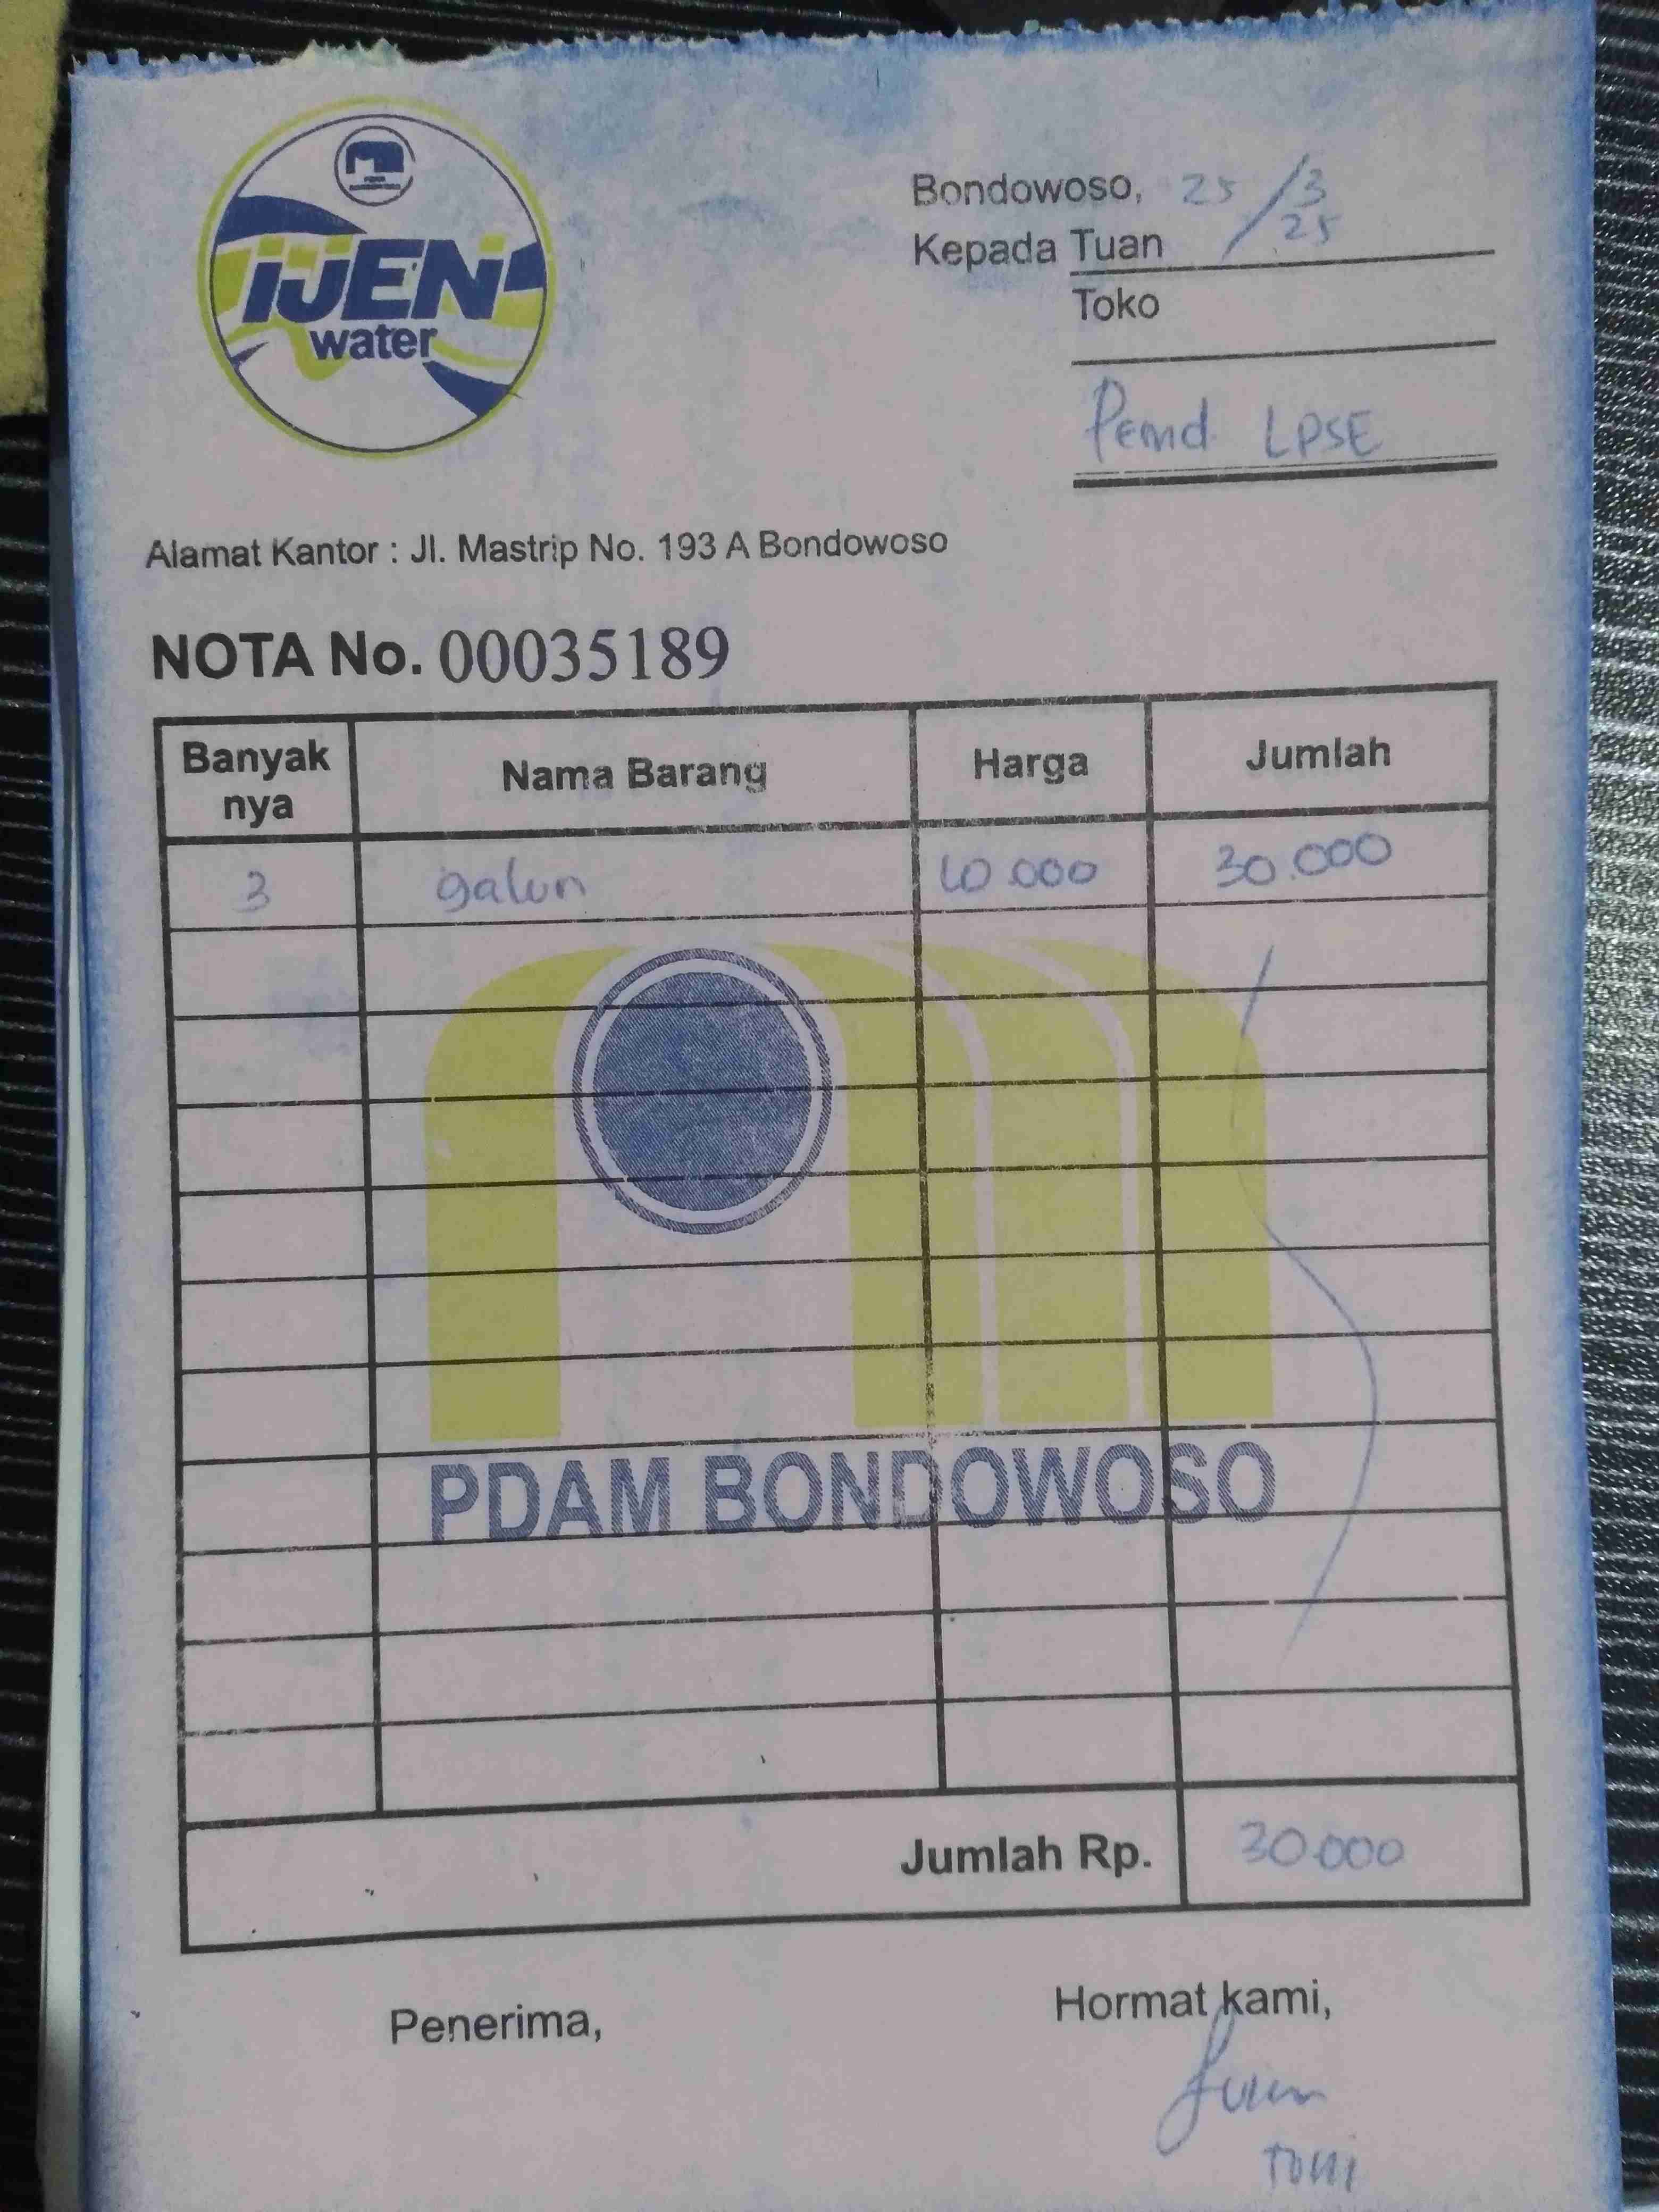 IJEN
water
Bondowoso, 25/3/25
Kepada Tuan
Toko
Pemd LPSE
Alamat Kantor : Jl. Mastrip No. 193 A Bondowoso
NOTA No. 00035189
Banyak nya Nama Barang Harga Jumlah
3 galun 10.000 30.000
PDAM BONDOWOSO
Jumlah Rp. 30.000
Penerima, Hormat kami,